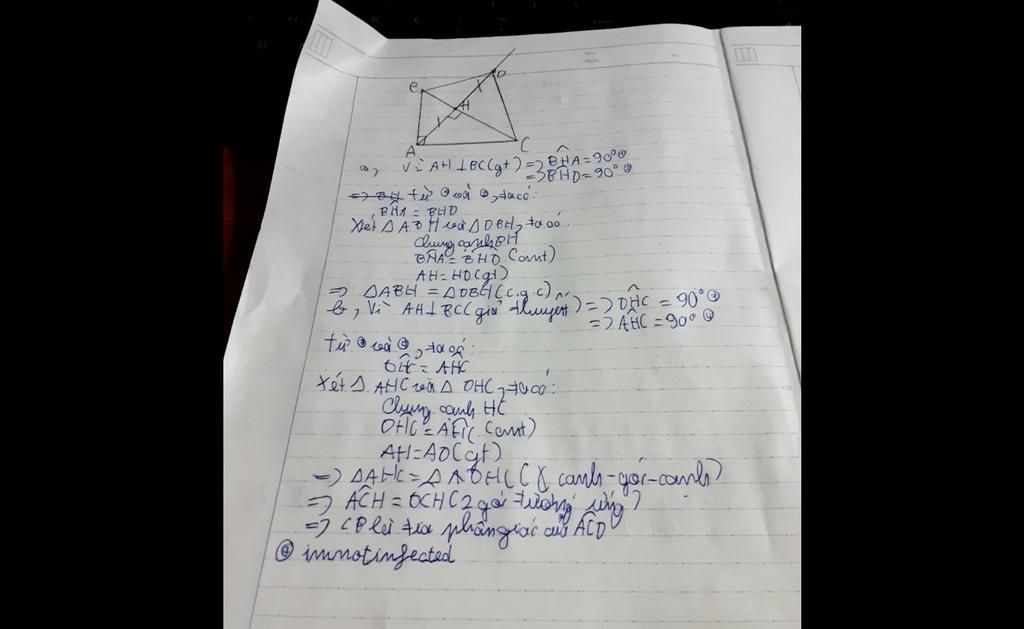 B
D
H
A
C
a, Vì AH⊥BC(gt) => BĤA=90° ①
=> BĤD=90° ②
Từ ① và ②, ta có:
BĤA = BHD
Xét △ABH và △DBH, ta có:
Chung cạnh BH
BĤA = BĤD (cmt)
AH=HD(gt)
=> △ABH = △DBH(c.g.c)
b, Vì AH⊥BC(giả thuyết) => DĤC = 90° ③
=> AĤC = 90° ④
Từ ③ và ④, ta có:
DĤC = AĤC
Xét △ AHC và △ DHC, ta có:
Chung cạnh HC
DĤC = AĤC (cmt)
AH=AD(gt)
=> △AHC = △ DHC( cạnh-góc-cạnh)
=> AĈH = DCH(2 góc tương ứng)
=> CB là tia phân giác của AĈD
@ imnotinfected